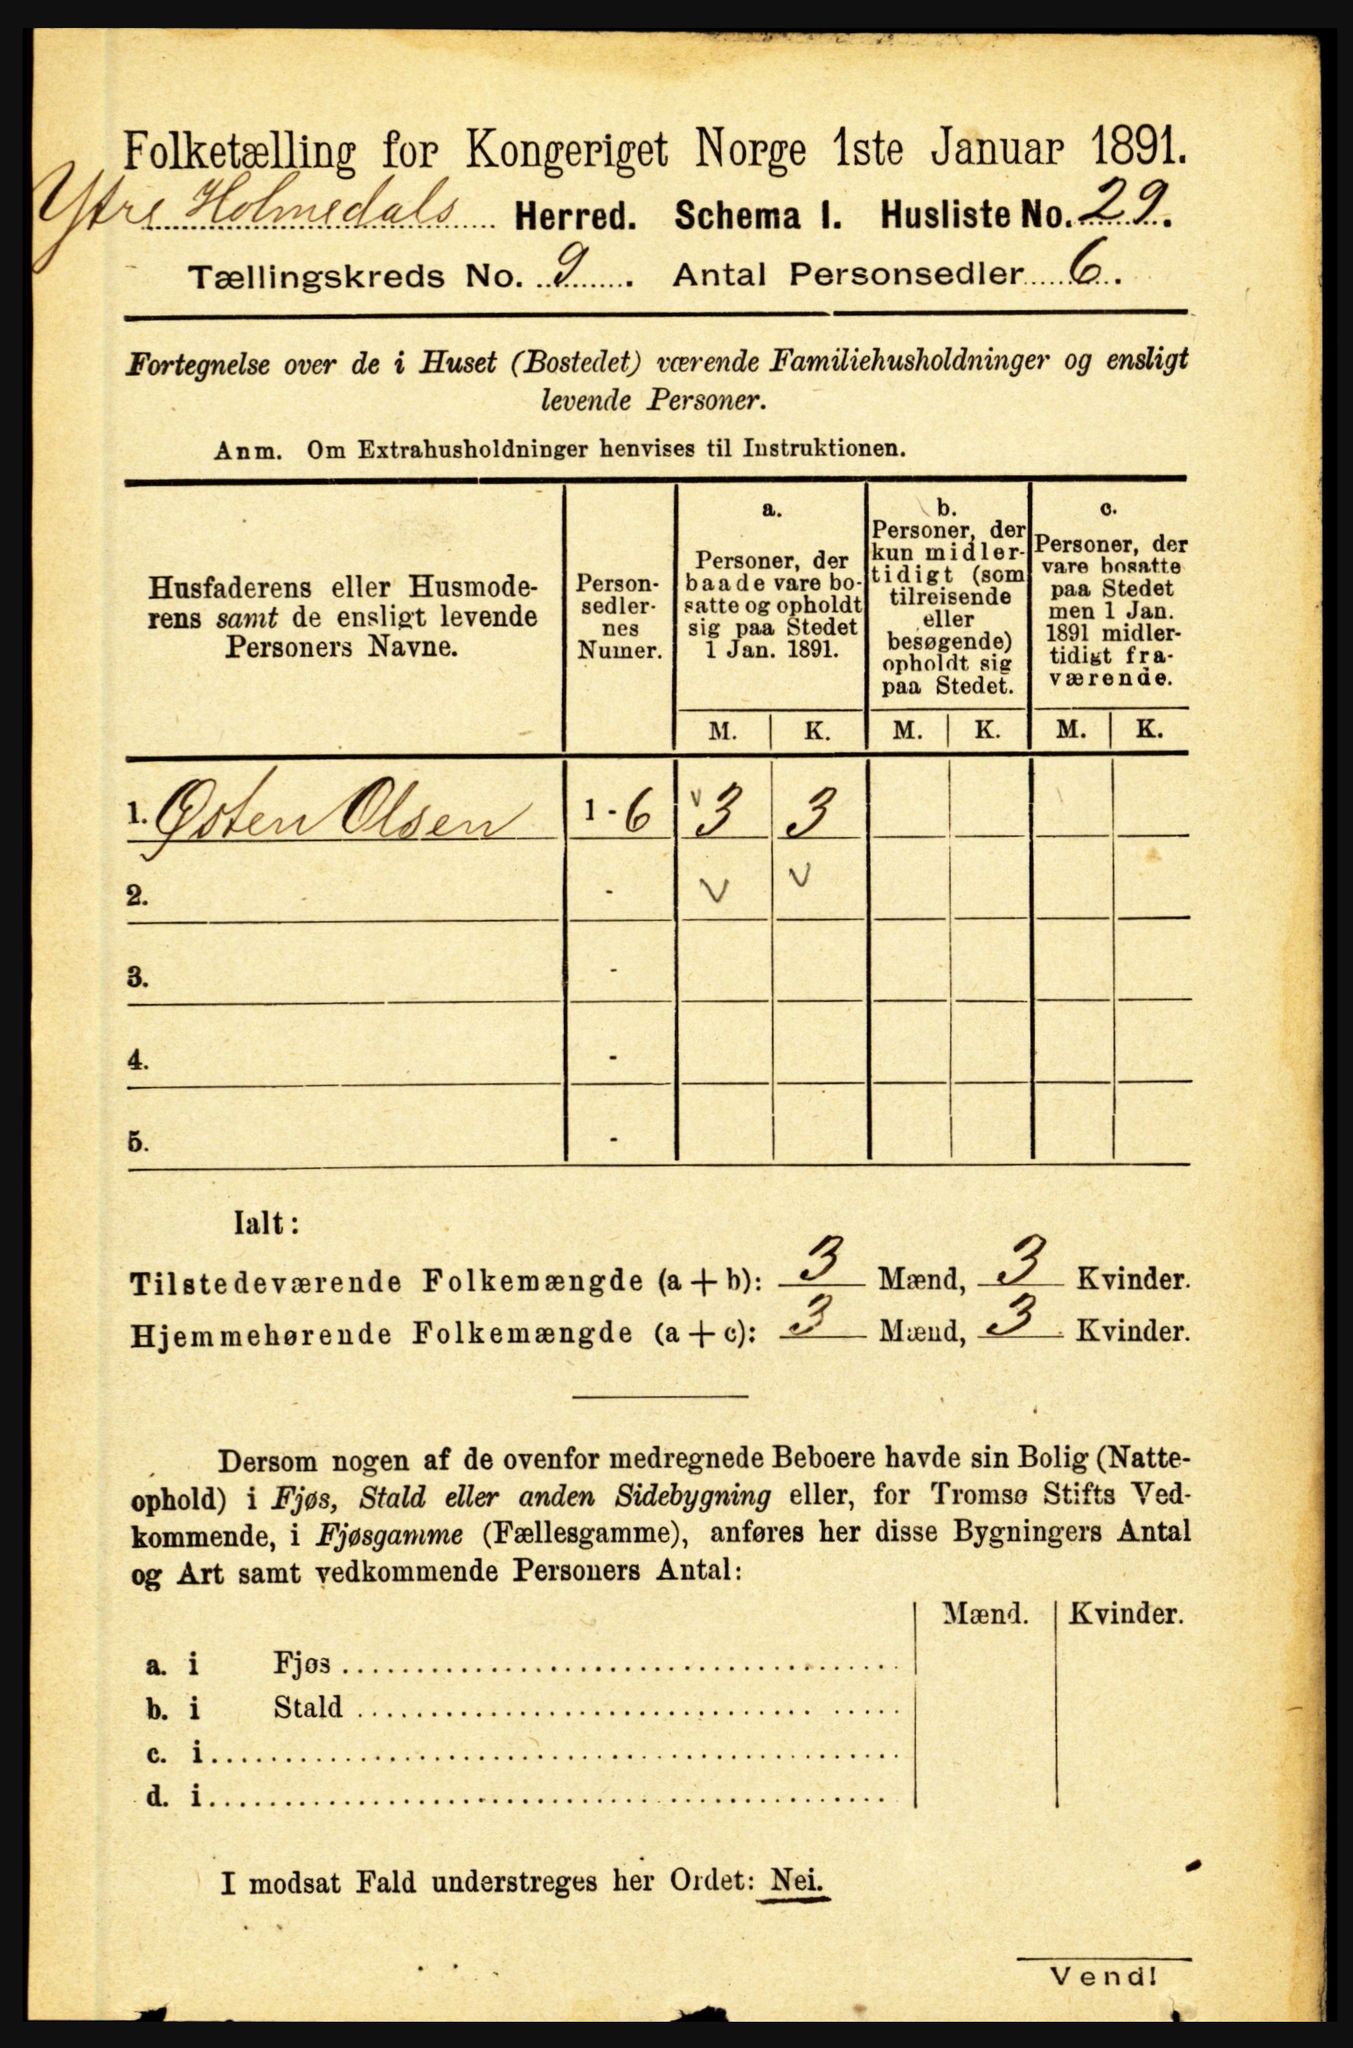 Folketælling for Kongeriget Norge 1ste Januar 1891.
Ytre Holmedals Herred. Schema I. Husliste No. 29.
Tællingskreds No. 9. Antal Personsedler 6.
Fortegnelse over de i Huset (Bostedet) værende Familiehusholdninger og ensligt
levende Personer.
Anm. Om Extrahusholdninger henvises til Instruktionen.
Husfaderens eller Husmode-
rens samt de ensligt levende
Personers Navne.
Person-
sedler-
nes
Numer.
a.
Personer, der
baade vare bo-
satte og opholdt
sig paa Stedet
1 Jan. 1891.
b.
Personer, der
kun midler-
tidigt (som
tilreisende
eller
besøgende)
opholdt sig
paa Stedet.
c.
Personer, der
vare bosatte
paa Stedet
men 1 Jan.
1891 midler-
tidigt fra-
værende.
M. K. M. K. M. K.
1. Østen Olsen 1 - 6 v 3 3
2. - v v
3. -
4. -
5. -
Ialt:
Tilstedeværende Folkemængde (a + b): 3 Mænd, 3 Kvinder.
Hjemmehørende Folkemængde (a + c): 3 Mænd, 3 Kvinder.
Dersom nogen af de ovenfor medregnede Beboere havde sin Bolig (Natte-
ophold) i Fjøs, Stald eller anden Sidebygning eller, for Tromsø Stifts Ved-
kommende, i Fjøsgamme (Fællesgamme), anføres her disse Bygningers Antal
og Art samt vedkommende Personers Antal:
Mænd. Kvinder.
a. i Fjøs
b. i Stald
c. i
d. i
I modsat Fald understreges her Ordet: Nei.
Vend!